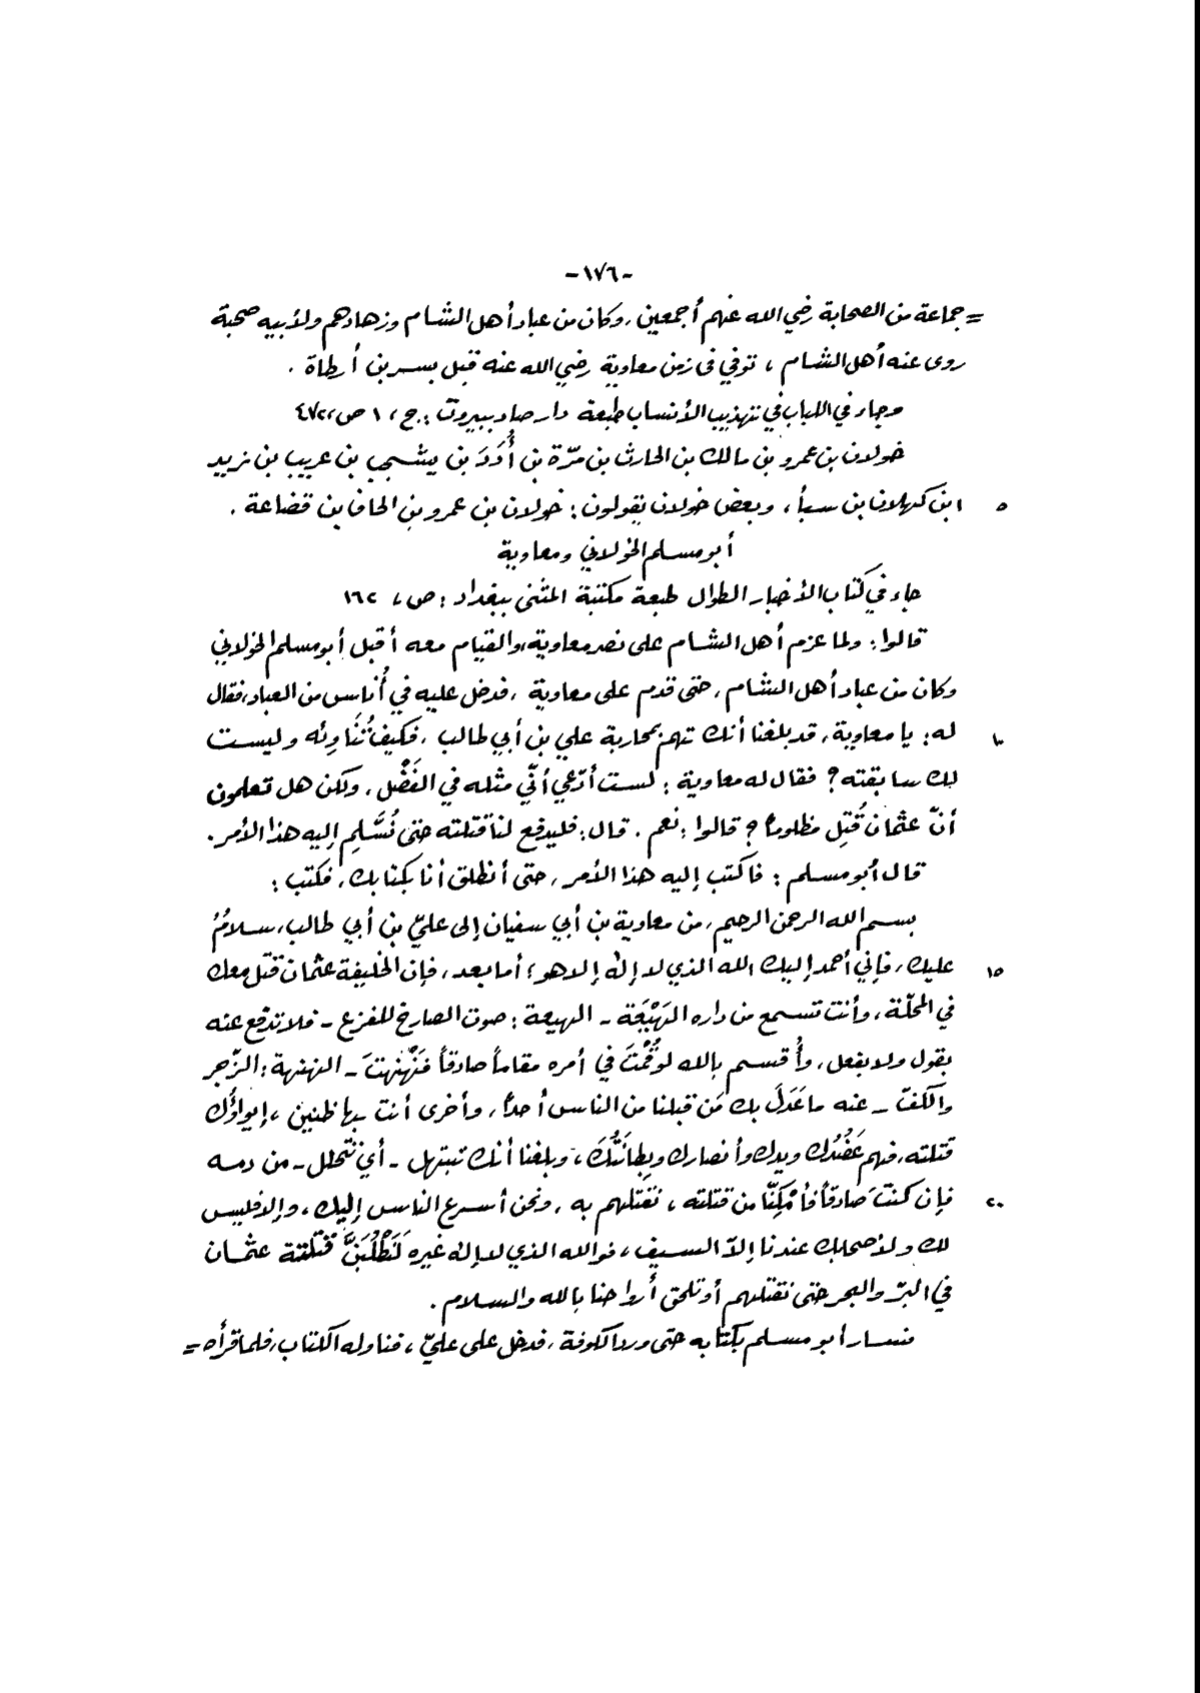 -١٧٦-
= جماعة من الصحابة رضي الله عنهم أجمعين، وكان من عباد أهل الشام وزهادهم ولأبيه صحبة
روى عنه أهل الشام، توفي في زمن معاوية رضي الله عنه قبل بسر بن أرطاة .
وجاء في اللباب في تهذيب الأنساب طبعة دار صادر ببيروت: ج، ١ ص، ٤٧٢
خولان بن عمرو بن مالك بن الحارث بن مرّة بن أُدَدَ بن يشجب بن عريب بن زيد
٥ ابن كهلان بن سبأ، وبعض خولان يقولون: خولان بن عمرو بن الحاف بن قضاعة .
أبو مسلم الخولاني ومعاوية
جاء في كتاب الأخبار الطوال طبعة مكتبة المثنى ببغداد: ص، ١٦٢
قالوا: ولما عزم أهل الشام على نصر معاوية، والقيام معه أقبل أبو مسلم الخولاني
وكان من عباد أهل الشام، حتى قدم على معاوية، فدخل عليه في أُناس من العباد، فقال
١٠ له: يا معاوية، قد بلغنا أنك تهم بمحاربة علي بن أبي طالب، فكيف تُنَاوِئه وليست
لك سابقته؟ فقال له معاوية: لست أدّعي أنّي مثله في الفَضْل، ولكن هل تعلمون
أنّ عثمان قُتِل مظلوماً؟ قالوا: نعم. قال: فليدفع لنا قتلته حتى نُسَلِّم إليه هذا الأمر.
قال أبو مسلم: فاكتب إليه هذا الأمر، حتى أنطلق أنا بكتابك، فكتب:
بسم الله الرحمن الرحيم، من معاوية بن أبي سفيان إلى عليّ بن أبي طالب، سلامٌ
١٥ عليك، فإني أحمد إليك الله الذي لا إله إلا هو؛ أما بعد، فإن الخليفة عثمان قتل معك
في المحلّة، وأنت تسمع من داره الهَيْعَة - الهيعة: صوت الصارخ للفزع - فلا تدفع عنه
بقول ولا بفعل، وأُقسم بالله لو قُمْتَ في أمره مقاماً صادقاً فَنَهْنَهتَ - النهنهة: الزّجر
والكفّ - عنه ما عَدَلَ بك مَن قبلنا من الناس أحداً، وأخرى أنت بها ظنين، إيواؤُك
قتلته، فهم عَضُدُك ويدك وأنصارك وبِطَانَتُكَ، وبلغنا أنك تبتهل - أي تتحلل - من دمه
٢٠ فإن كنتَ صادقاً فأَمْكِنّا من قتلته، نقتلهم به، ونحن أسرع الناس إليك، وإلا فليس
لك ولأصحابك عندنا إلاّ السيف، فوالله الذي لا إله غيره لَنَطْلُبَنَّ قتلتة عثمان
في البرّ والبحر حتى نقتلهم أو تلحق أرواحنا بالله والسلام.
فسار أبو مسلم بكتابه حتى ورد الكوفة، فدخل على عليّ، فناوله الكتاب، فلما قرأه =